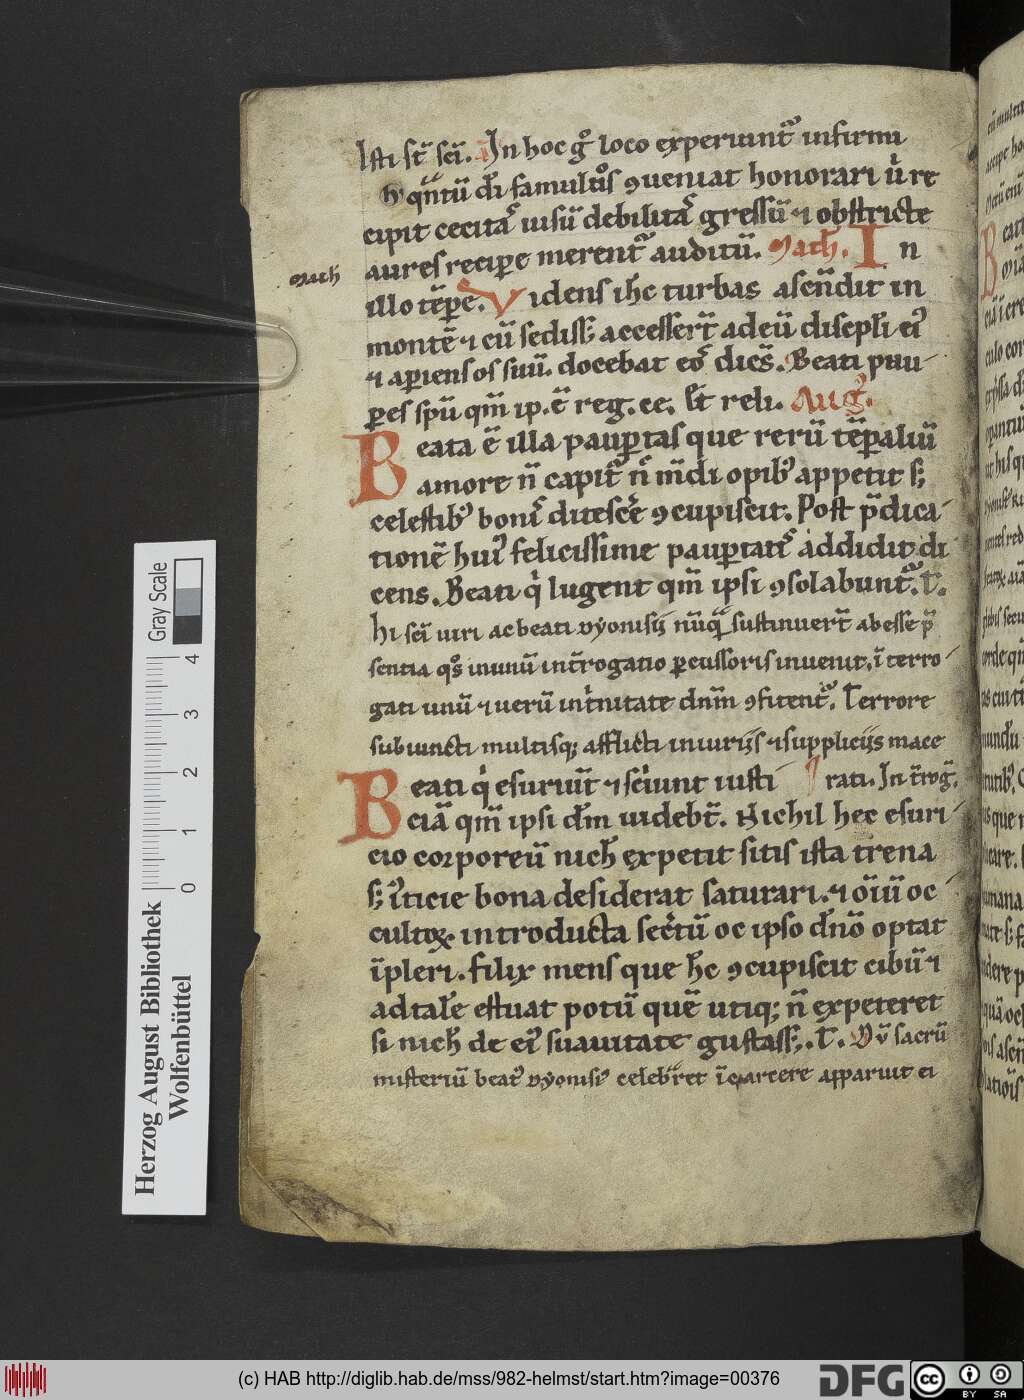 Isti st̄ sc̄i. In hoc g° loco experiunt᷑ infirmi
h̓ qn̄tū dī famulos ꝯueniat honorari u̓ re
cipit cecitas uisū debilitas gressū ⁊ obstricte
aures recipe merent᷑ auditū. Math. In
Math
illo tēꝑe. Videns ihc turbas ascendit in
montē ⁊ cū sediss; accesserт̄ ad eū discipl̄i ei᷒
⁊ aꝑiens os suū. docebat eos dicēs. Beati pau
ꝑes spū qm̄ ip. ē reg. ce. Et reli. Aug᷒.
Beata ē illa pauꝑtas que rerū tēꝑaliū
amore n̄ capit᷑ n̄ mūdi opib᷒ appetit s;
celestib᷒ bonis ditescēr ꝯcupiscit. Post p̄dica
tionē hui᷒ felicissime pauꝑtatis addidit di
cens. Beati q̓ lugent qm̄ ipsi ꝯsolabunt᷑. L.
hi sc̄i uiri ac beati dyonisij nūqͣ sustinuerт̄ abesse p̄
sentia q°s inunū int̄rogatio ꝑcussoris inuenit, ī terro
gati unū ⁊ uerū int̓nitate dnm̄ ꝯfitent᷑. Terrore
subiuncti multisq; afflicti iniurijs ⁊ supplicijs mace
Beati q̓ esuriūt ⁊ sc̓iunt iusti rati. In t̄rog̓.
ciā qm̄ ipsi dm̄ uidebт̄. Nichil hec esuri
cio corporeū nich̄ expetit sitis ista trena
s; i᷒ticie bona desiderat saturari. ⁊ oīuī oc
cultoꝝ introducta sec̓tū oc ipso dn̄o optat
īpleri. Filix mens que h̄c ꝯcupiscit cibū ⁊
ad tal̄e estuat potū quē utiq; n̄ expeteret
si nich̄ de ei᷒ suauitate gustass;. L. Dū sacrū
misteriū beat᷒ dyonisi᷒ celebr̄ret ī carcere apparuit ei
Gray Scale
0 1 2 3 4
Herzog August Bibliothek
Wolfenbüttel
(c) HAB http://diglib.hab.de/mss/982-helmst/start.htm?image=00376
DFG
cc BY SA